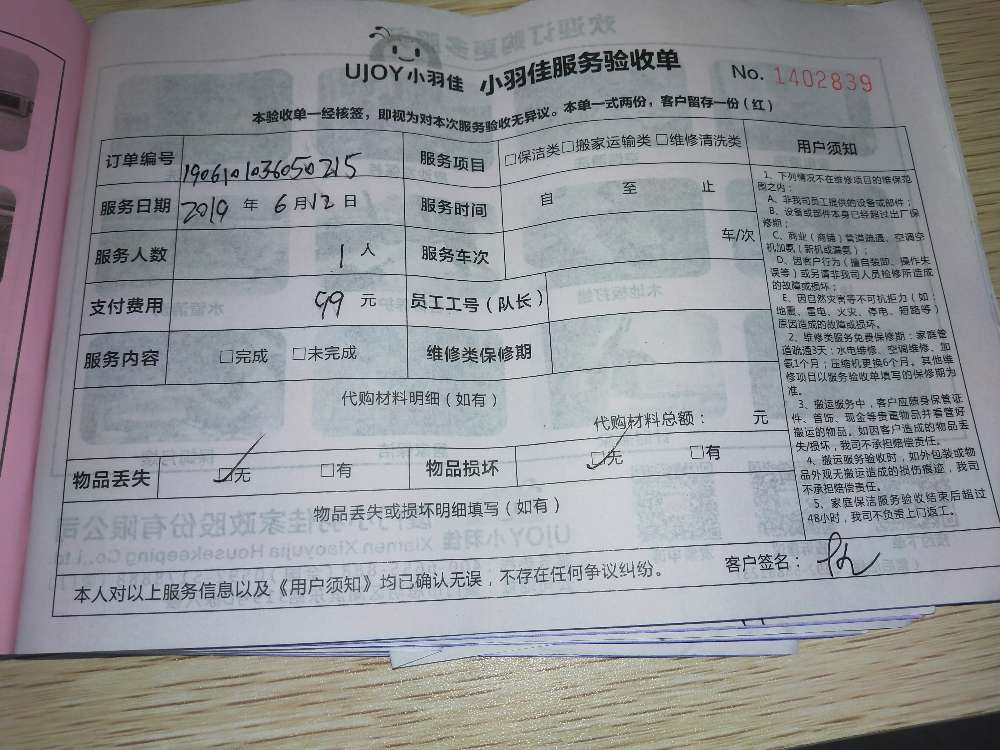 UJOY小羽佳 小羽佳服务验收单 No. 1402839
本验收单一经核签，即视为对本次服务验收无异议。本单一式两份，客户留存一份（红）
订单编号 1906101036050215 服务项目 □保洁类□搬家运输类 □维修清洗类
服务日期 2019 年 6 月 12 日 服务时间 自 至 止
服务人数 1 人 服务车次 车/次
支付费用 99 元 员工工号（队长）
服务内容 □完成 □未完成 维修类保修期
代购材料明细（如有）
代购材料总额： 元
物品丢失 ☑无 □有 物品损坏 ☑无 □有
物品丢失或损坏明细填写（如有）
本人对以上服务信息以及《用户须知》均已确认无误，不存在任何争议纠纷。 客户签名：
用户须知
1、下列情况不在维修项目的维保范
围之内：
A、非我司员工提供的设备或部件；
B、设备或部件本身已经超过出厂保
修期；
C、商业（商铺）管道疏通、空调空
机加氨（新机或漏氨）；
D、因客户行为（擅自装卸、操作失
误等）或另请非我司人员检修所造成
的故障或损坏；
E、因自然灾害等不可抗拒力（如：
地震、雷电、火灾、停电、短路等）
原因造成的故障或损坏。
2、维修类服务免费保修期：家庭管
道疏通3天；水电维修、空调维修、加
氨1个月；压缩机更换6个月。其他维
修项目以服务验收单填写的保修期为
准。
3、搬运服务中，客户应随身保管证
件、首饰、现金等贵重物品并看管好
搬运的物品。如因客户造成的物品丢
失/损坏，我司不承担赔偿责任。
4、搬运服务验收时，如外包装或物
品外观无搬运造成的损伤痕迹，我司
不承担赔偿责任。
5、家庭保洁服务验收结束后超过
48小时，我司不负责上门返工。